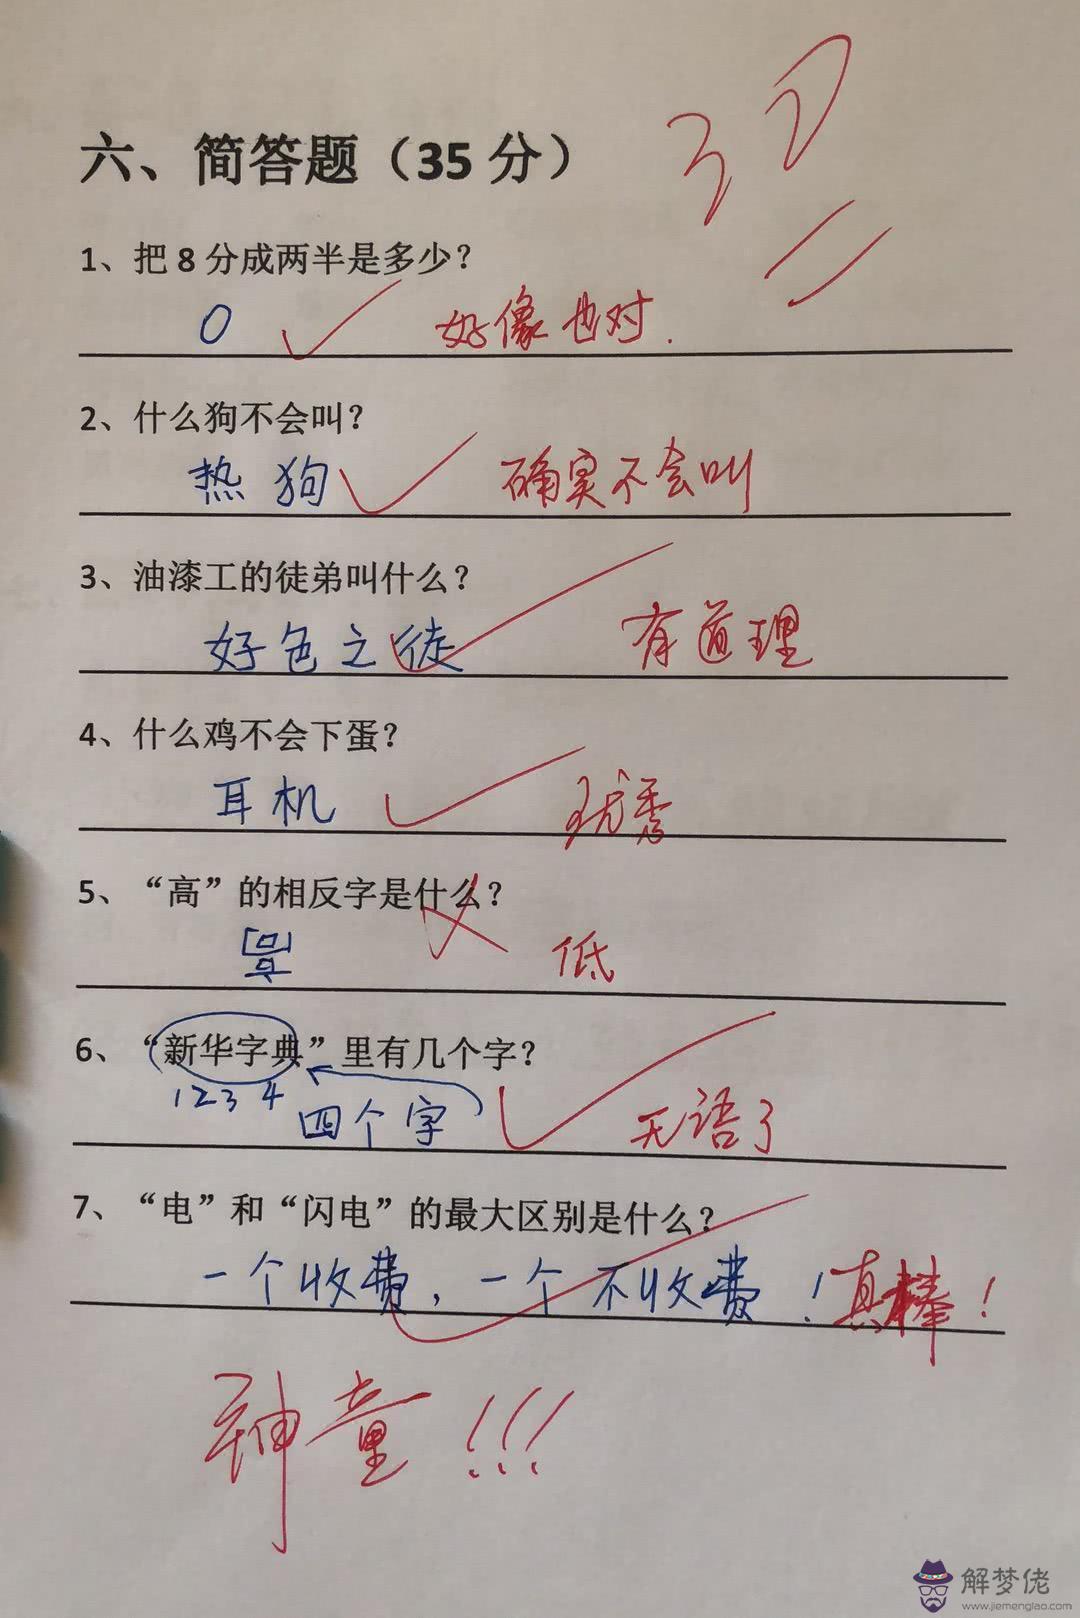 六、简答题（35 分） 30
1、把 8 分成两半是多少？
0 好像也对.
2、什么狗不会叫？
热狗 确实不会叫
3、油漆工的徒弟叫什么？
好色之徒 有道理
4、什么鸡不会下蛋？
耳机 优秀
5、“高”的相反字是什么？
低
6、“新华字典”里有几个字？
1 2 3 4 四个字 无语了
7、“电”和“闪电”的最大区别是什么？
一个收费，一个不收费！真棒！
神童!!!
解梦佬
www.jiemenglao.com